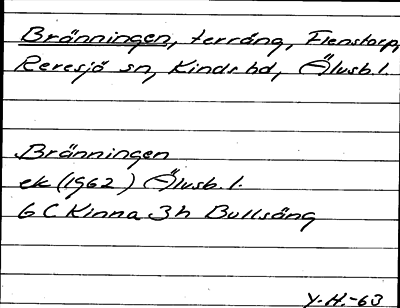 Bränningen, terräng, Flenstorp,
Revesjö sn, Kinds hd, Älvsb. l.
Bränningen
ek (1962) Älvsb. l.
6 C Kinna 3h Bullsäng
Y. H. -63